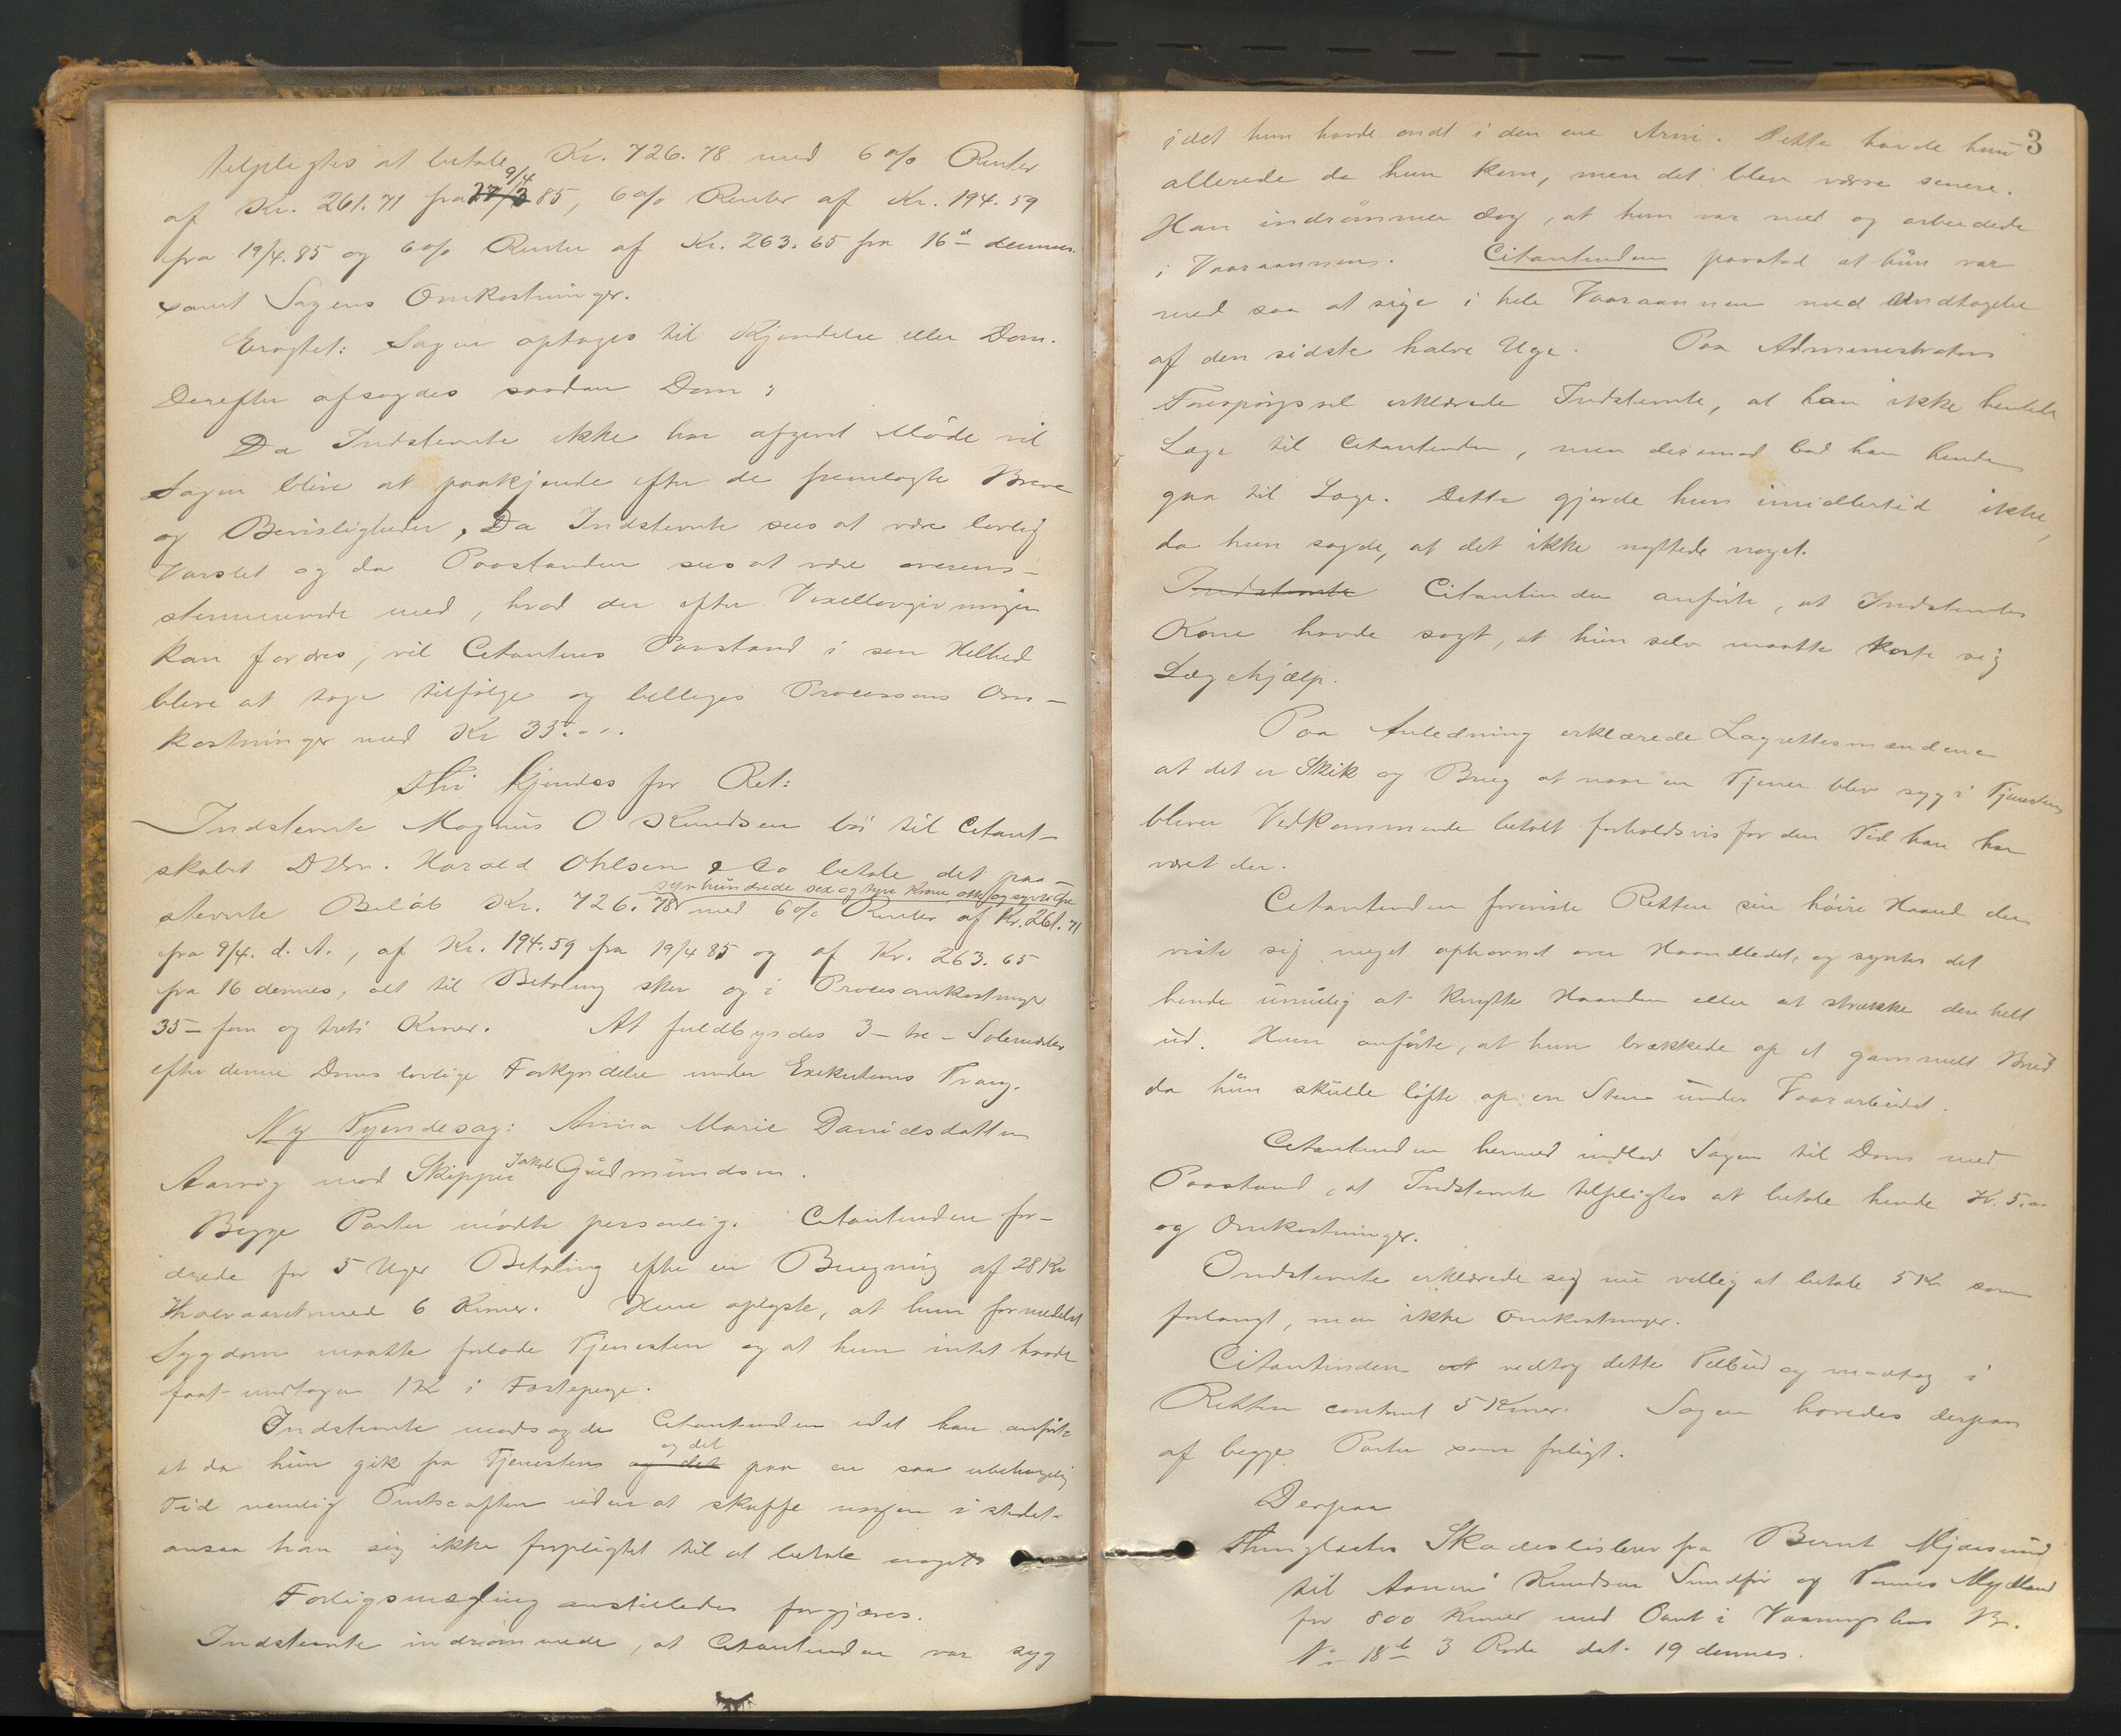 tilpligtes at betale Kr. 726.78 med 6 o/o Renter
af Kr. 261.71 fra 9/4 85, 6 o/o Renter af Kr. 194.59
fra 19/4.85 og 6 o/o Renter af Kr. 263.65 fra 16d dennes
samt Sagens Omkostninger.
Eragtet: Sagen optages til Kjendelse eller Dom.
Derefter afsagdes saadan Dom:
Da Indstevnte ikke har afgivet Møde vil
Sagen blive at paakjende efter de fremlagte Breve
og Bevisligheder, Da Indstevnte sees at være lovlig
Varslet og da Paastanden sees at være overens-
stemmende med, hvad der efter Vexellovgivningen
kan fordres, vil Citantens Paastand i sin Helhed
blive at tage tilfølge og billiges Processens Om-
kostninger med Kr 35.
Thi kjendes for Ret:
Indstevnte Magnus O Knudsen bør til Citant-
skabet DHrr. Harald Ohlsen & Co betale det paa-
stevnte Beløb Kr. 726.78 syvhundrede sex og tyve Kroner otte og syvti Øre med 6 o/o Renter af Kr. 261.71
fra 9/4. d. A., af Kr. 194.59 fra 19/4 85 og af Kr. 263.65
fra 16 dennes, alt til Betaling sker og i Procesomkostninger
35 – fem og treti Kroner. At fuldbyrdes 3 – tre – Solemærker
efter denne Doms lovlige Forkyndelse under Exekutions Tvang.
Ny Tyendesag: Anna Marie Danielsdatter
Aarvig mod Skipper Jakob Gudmundsen.
Begge Parter mødte personlig. Citantinden for-
drede for 5 Uger Betaling efter en Beregning af 28 Kr
Halvaaret med 6 Kroner. Hun oplyste, at hun formedelst
Sygdom maatte forlade Tjenesten og at hun intet havde
faaet undtagen 1 Kr i Fæstepenge.
Indstevnte modsagde Citantinden idet han anførte
at da hun gik fra Tjenesten og det paa en saa ubehagelig
Tid nemlig Pintseaften uden at skaffe nogen i stedet
ansaa han sig ikke forpligtet til at betale noget
Forligsmægling anstilledes forgjæves.
Indstevnte indrømmede, at Citantinden var syg
3
idet hun havde ondt i den ene Arm. Dette havde hun
allerede da hun kom, men det blev værre senere.
Han indrømmer dog, at hun var med og arbeidede
i Vaaraannen. Citantinden paastod at hun var
med saa at sige i hele Vaaraannen med Undtagelse
af den sidste halve Uge. Paa Administrators
Forespørgsel erklærede Indstevnte, at han ikke hentede
Læge til Citantinden, men derimod bad han hende
gaa til Læge. Dette gjorde hun imidlertid ikke,
da hun sagde, at det ikke nyttede noget.
Indstevnte Citantinden anførte, at Indstevntes
Kone havde sagt, at hun selv maatte koste sig
Lægehjælp.
Paa Anledning erklærede Lagrettesmændene
at det er Skik og Brug at naar en Tjener blev syg i Tjenesten
bliver Vedkommende betalt forholdsvis for den Tid han har
været der.
Citantinden foreviste Retten sin høire Haand der
viste sig meget ophovnet over Haandledet, og syntes det
hende umulig at knytte Haanden eller at strække den helt
ud. Hun anførte, at hun brækkede op et gammelt Brud
da hun skulde løfte op en Sten under Vaararbeidet.
Citantinden hermed indlod Sagen til Dom med
Paastand, at Indstevnte tilpligtes at betale hende Kr. 5.
og Omkostninger.
Indstevnte erklærede sig nu villig at betale 5 Kr som
forlangt, men ikke Omkostninger.
Citantinden vedtog dette Tilbud og modtog i
Retten contant 5 Kroner. Sagen hævedes derpaa
af begge Parter som forligt.
Derpaa
Thinglæstes Skadesløsbrev fra Bernt Mjøsund
til Knudsen og Mydland
for 800 Kroner med Pant i Vaaningshus
No 18b 3 Rode dat. 19 dennes.